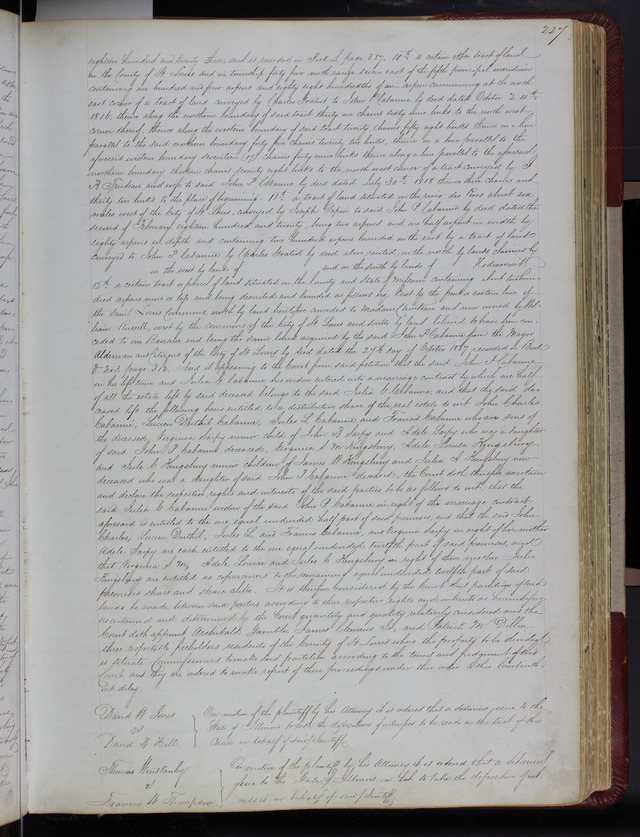 227
eighteen hundred and twenty three, and is recorded in Book L page 287. 10th a certain other tract of land
in the County of St Louis and in township forty five north range seven east of the fifth principal meridian
containing one hundred and four arpens and eighty eight hundredths of an arpen commencing at the north
east corner of a tract of land conveyed by Charles Gratiot to John P Cabanne by deed dated October 24th
1816, thence along the northern boundary of said tract thirty one chains sixty nine links to the north west
corner thereof, thence along the western boundary of said tract twenty chains fifty eight links thence in a line
parallel to the said northern boundary forty five chains twenty two links, thence in a line parallel to the
aforesaid western boundary seventeen chains forty nine links thence along a line parallel to the aforesaid
northern boundary thirteen chains seventy eight links to the north west corner of a tract conveyed by
and wife to said John P Cabanne by deed dated July 30th 1818 thence three chains and
thirty two links to the place of beginning. 11th a tract of land situated on the river des Peres about six
miles west of the City of St Louis, conveyed by Joseph Papin to said John P Cabanne by deed dated the
second of February eighteen hundred and twenty, being two arpens and one half arpent in width by
eighty arpens in depth and containing two hundred arpens bounded on the east by a tract of land
conveyed to John P Cabanne by Charles Gratiot by deed above recited, on the north by lands claimed by
on the west by lands of and on the south by lands of Hodiamont &
12th a certain tract or parcel of land situated in the County and State of Missouri containing about
hundred arpens more or less and being described and bounded as follows viz. East by the front or eastern line of
the Saint Louis Commons, north by land heretofore conceded to Madame Choteau and now owned by
William Russell, west by the commons of the City of St Louis and south by land believed to have been
conceded to one and being the same land acquired by the said John P Cabanne from the Mayor
Aldermen and Citizens of the City of St Louis by deed dated the 27th day of October recorded in Book
No 3, page 312. And it appearing to the Court from said petition that the said John P Cabanne
in his lifetime and Julia G Cabanne his widow entered into a marriage contract by which one half
of all the estate left by said deceased belongs to the said Julia G Cabanne, and that the said
deceased left the following heirs entitled to a distributive share of the real estate to wit John Charles
Cabanne, Lucien Duthil Cabanne, Jules L Cabanne and Francis Cabanne who are sons of
the deceased, Virginia Sarpy minor child of John B Sarpy and Adele Sarpy who was a daughter
of said John P Cabanne deceased, Virginia S M Kingsbury, Adele Louisa Kingsbury
and Jule C Kingsbury minor children of James W Kingsbury and Julia A Kingsbury now
deceased who was a daughter of said John P Cabanne deceased, the Court doth therefore ascertain
and declare the respective rights and interests of the said parties to be as follows to wit that the
said Julia G Cabanne widow of the said John P Cabanne in right of the marriage contract
aforesaid is entitled to the one equal undivided half part of said premises, and that the said John
Charles, Lucien Duthil, Jules L and Francis Cabanne, and Virginia Sarpy in right of her mother
Adele Sarpy are each entitled to the one equal undivided twelfth part of said premises, and
that Virginia S M, Adele Louisa and Jules C Kingsbury in right of their mother Julia
Kingsbury are entitled as coparceners to the remaining equal undivided twelfth part of said
premises share and share alike. It is therefore considered by the Court that partition of said
lands be made between said parties according to their respective rights and interests as herein before
ascertained and determined by the Court quantity and quality relatively considered and the
Court doth appoint Archibald Gamble, James Clemens Jr and Patrick M Dillon
three respectable freeholders residents of the County of St Louis where the property to be divided
is situate Commissioners to make said partition according to the tenor and judgment of this
Court and they are ordered to make report of their proceedings under this order to this Court
without delay.
David W Jones
vs
David D Hill
On motion of the plaintiff by his Attorney it is ordered that a dedimus issue to the
State of Illinois to take the depositions of witnesses to be read on the trial of this
cause in behalf of said plaintiff.
Thomas Winstanley
vs
Francis W Thompson
On motion of the plaintiff by his Attorney it is ordered that a dedimus
issue to the State of Illinois to take the deposition of
witnesses on behalf of said plaintiff.